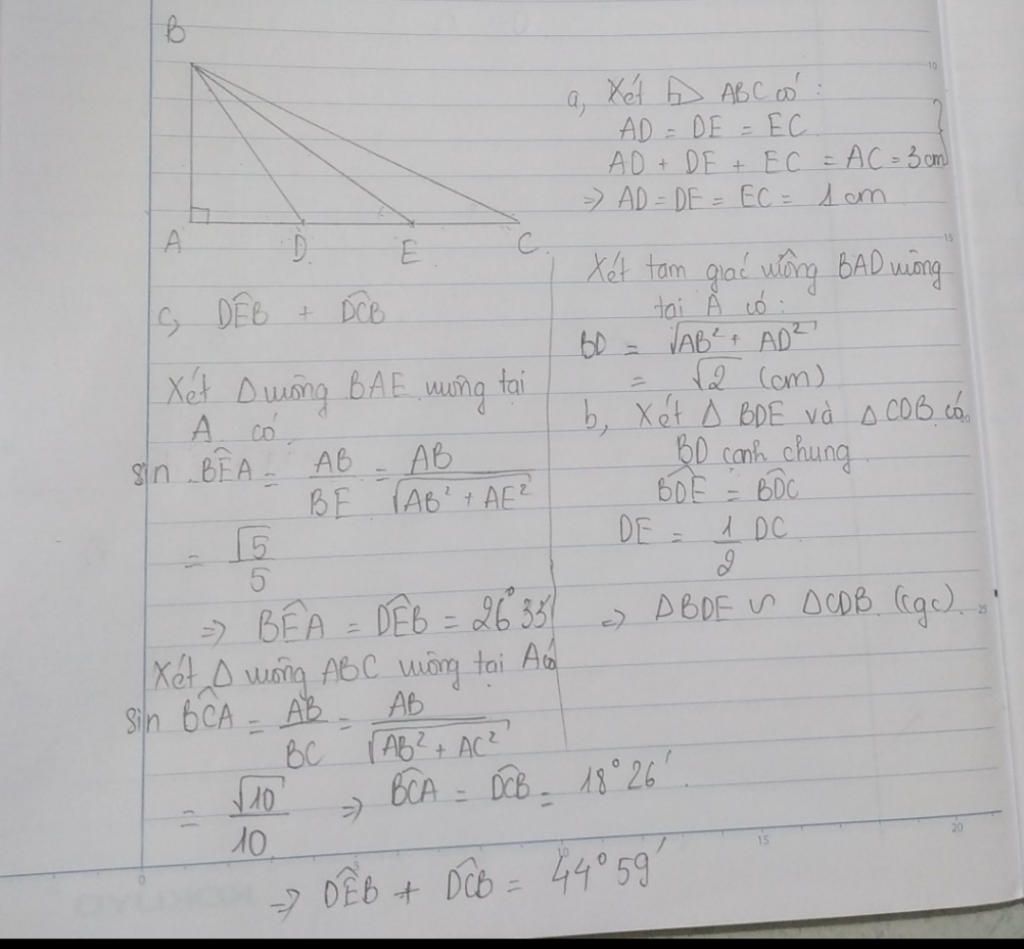 B
A D E C
a, Xét ⊿ ABC có :
AD = DE = EC
AD + DE + EC = AC = 3 cm
=> AD = DE = EC = 1 cm
Xét tam giác vuông BAD vuông
tại A có :
BD = √AB² + AD²
= √2 (cm)
b, Xét Δ BDE và Δ CDB có
BD cạnh chung
BDE = BDC
DE = 1/2 DC
=> ΔBDE ∽ ΔCDB (cgc).
c, DEB + DCB
Xét Δ vuông BAE vuông tại
A có
sin BEA = AB/BE = AB/√AB² + AE²
= √5/5
=> BEA = DEB = 26°33'
Xét Δ vuông ABC vuông tại A có
sin BCA = AB/BC = AB/√AB² + AC²
= √10/10 => BCA = DCB = 18°26'.
=> DEB + DCB = 44°59'
10
15
25
0
15
20